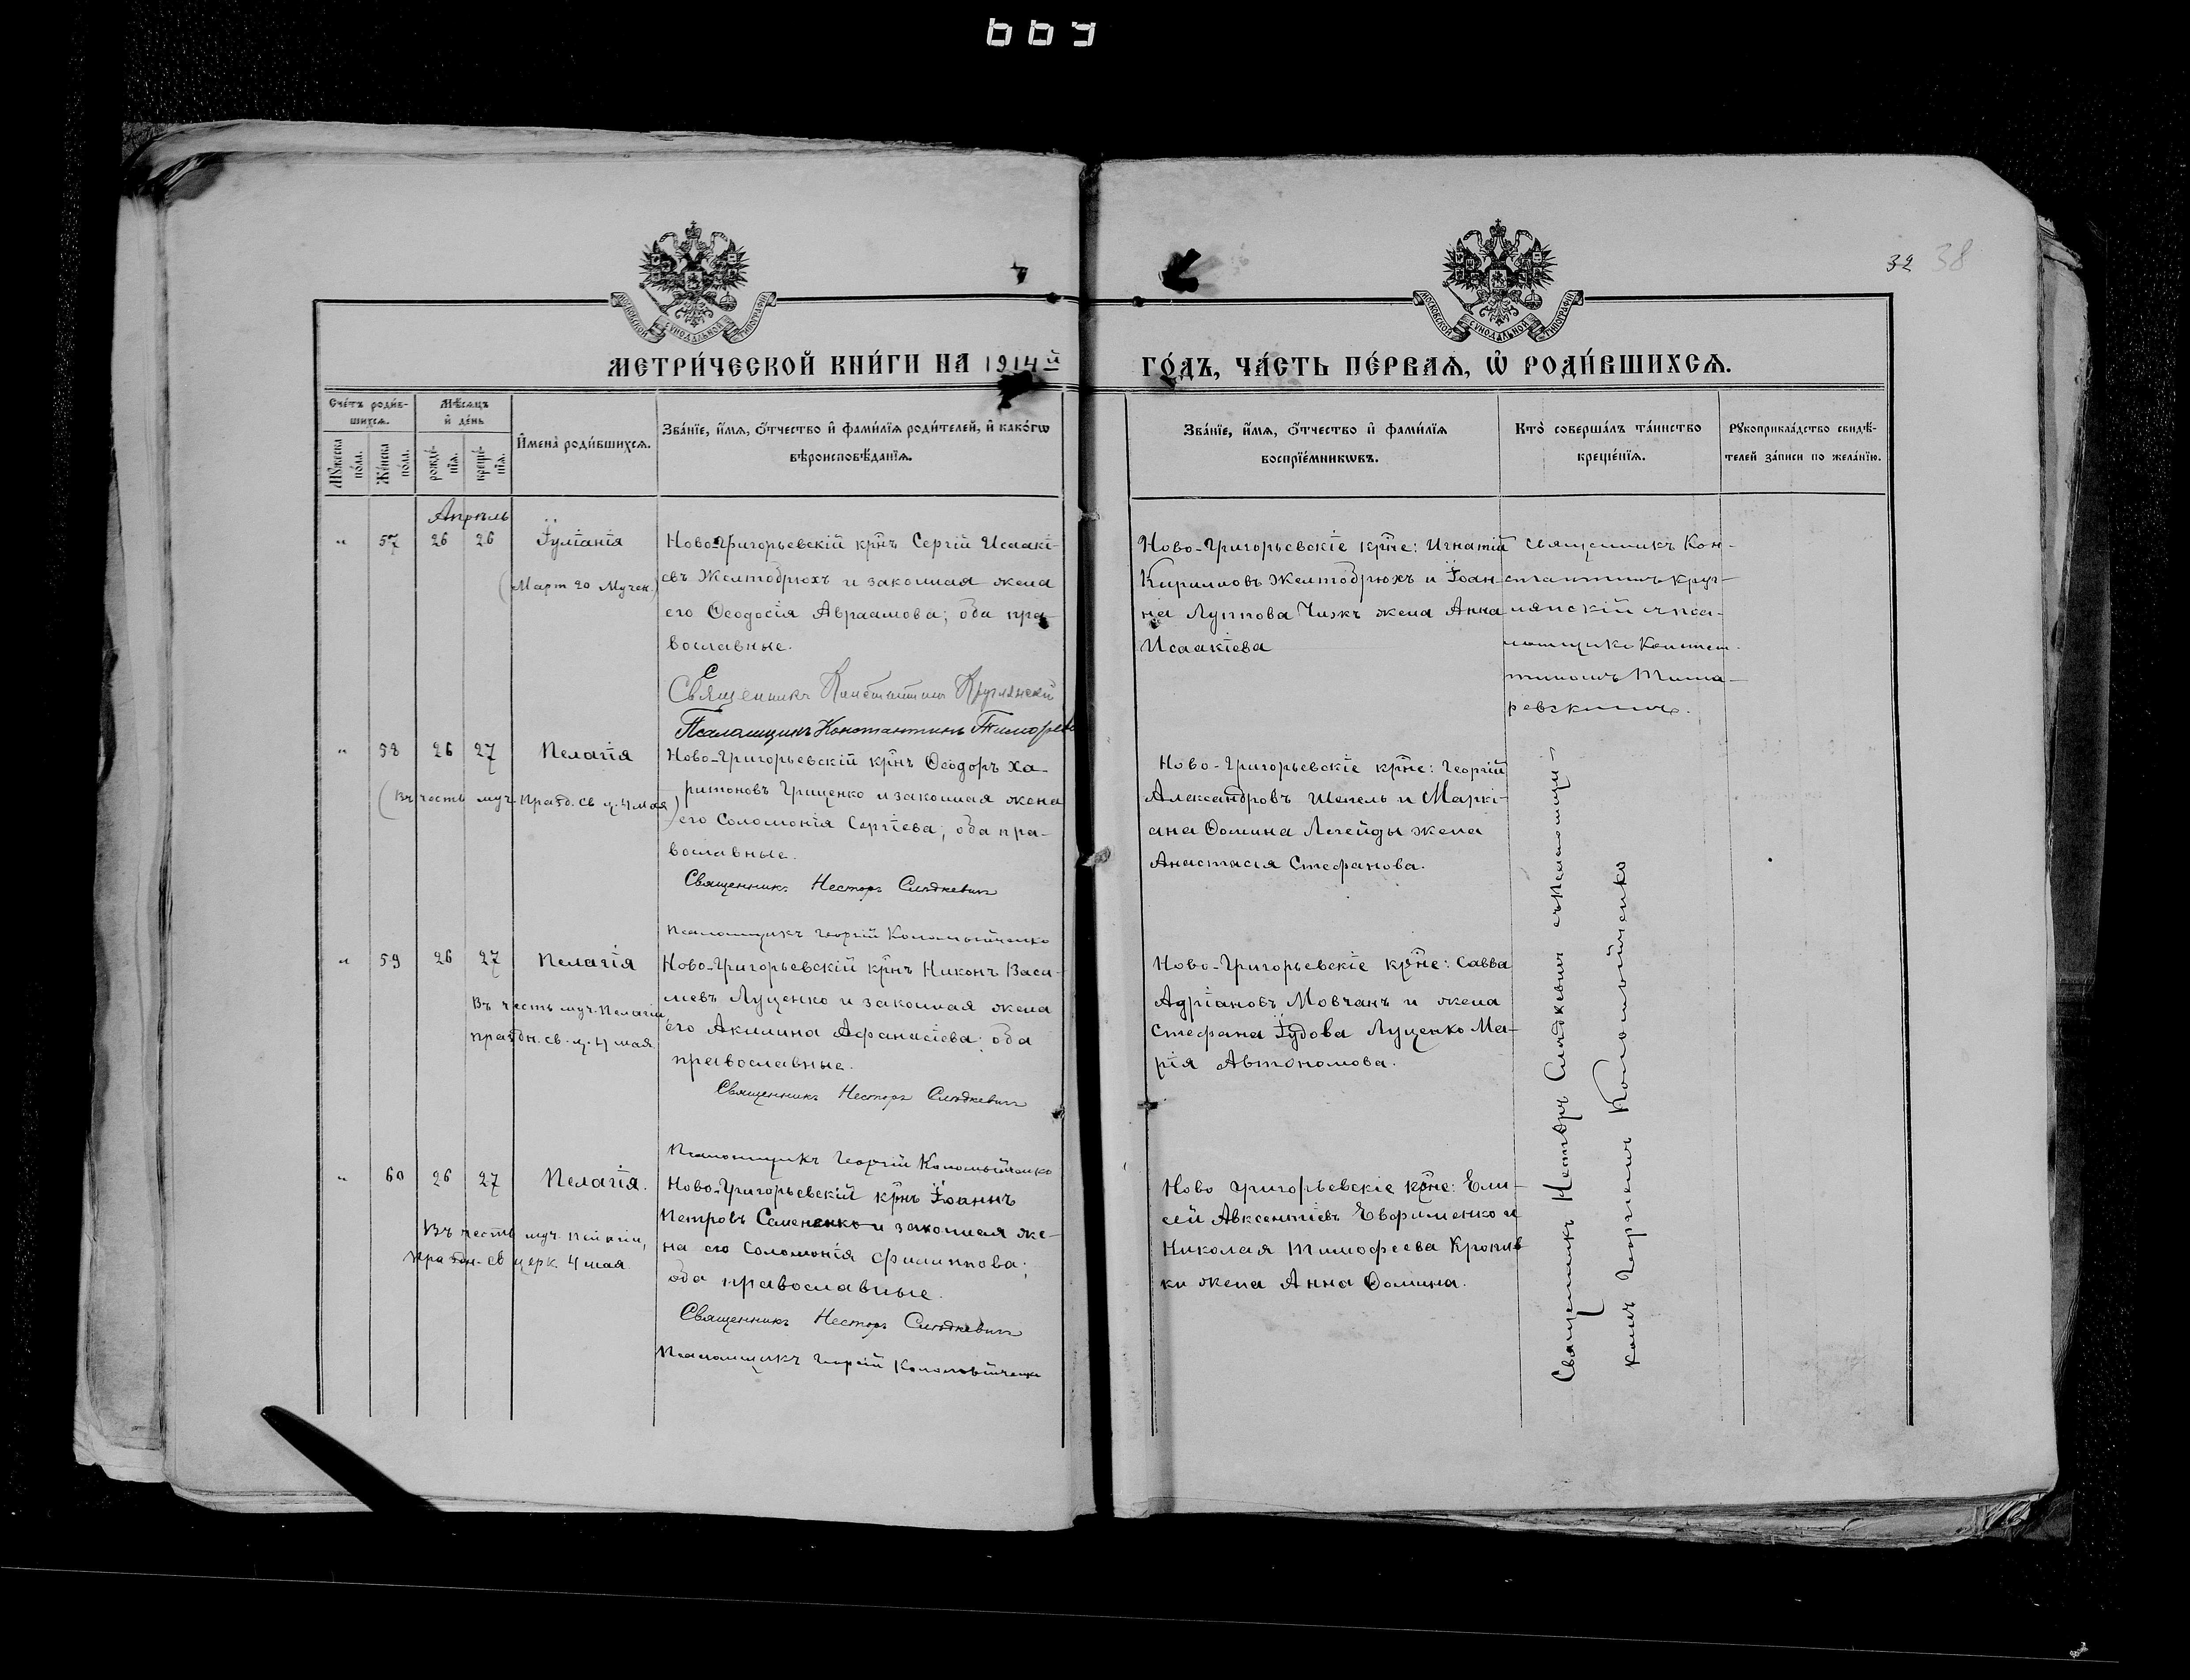 669
32 38
МОСКОВСКОЙ СУНОДАЛЬНОЙ ТИПОГРАФІИ
МОСКОВСКОЙ СУНОДАЛЬНОЙ ТИПОГРАФІИ
МЕТРИ́ЧЕСКОЙ КНИ́ГИ НА 1914й
ГО́ДЪ, ЧА́СТЬ ПЕ́РВАѦ, Ѡ҆ РОДИ́ВШИХСѦ.
Сче́тъ роди́в-
шихсѧ.
Мѣ́сѧцъ
и҆ де́нь
Мꙋ́жеска
по́ла.
Же́нска
по́ла.
рожде́-
нїѧ.
креще́-
нїѧ.
И҆мена̀ роди́вшихсѧ.
Зва́нїе, и҆́мѧ, ѻ҆́тчество и҆ фами́лїѧ роди́телей, и҆ како́гѡ
вѣроисповѣ́данїѧ.
Зва́нїе, и҆́мѧ, ѻ҆́тчество и҆ фами́лїѧ
воспрїе́мникѡвъ.
Кто̀ соверша́лъ та́инство
креще́нїѧ.
Рꙋкоприкла́дство свидѣ́-
телей за́писи по жела́нїю.
Апрѣль
" 57 26 26 Іуліанія
(Март 20 Мучен.)
Ново-Григорьевскій кр̃нъ Сергій Исаакі-
евъ Желтобрюхъ и законная жена
его Ѳеодосія Авраамова; оба пра-
вославные.
Священникъ Константинъ Круглянскій
Псаломщикъ Константинъ
Ново-Григорьевскіе кр̃не: Игнатій
Кирилловъ Желтобрюхъ и Іоан-
на Луппова Чижъ жена Анна
Исаакіева
Священникъ Кон-
стантинъ Круг-
лянскій съ пса-
ломщикомъ Констан-
тиномъ
ревскимъ.
" 58 26 27 Пелагія
(Въ честь муч. празд. св. ц. 4 мая)
Ново-Григорьевскій кр̃нъ Ѳеодоръ Ха-
ритоновъ Гриценко и законная жена
его Соломонія Сергіева; оба пра-
вославные.
Священникъ Несторъ Слядкевичъ
Псаломщикъ Георгій Коломыйченко
Ново-Григорьевскіе кр̃не: Георгій
Александровъ Шепель и Маркі-
ана Ѳомина Легейды жена
Анастасія Стефанова.
Священникъ Несторъ Слядкевичъ съ Псаломщи-
комъ Георгіемъ Коломыйченко
" 59 26 27 Пелагія
Въ честь муч. Пелагіи,
праздн. св. ц. 4 мая
Ново-Григорьевскій кр̃нъ Никонъ Васи-
льевъ Луценко и законная жена
его Акилина Аѳанасіева; оба
православные.
Священникъ Несторъ Слядкевичъ
Псаломщикъ Георгій Коломыйченко
Ново-Григорьевскіе кр̃не: Савва
Адріановъ Мовчанъ и жена
Стефана Іудова Луценко Ма-
рія Автономова.
" 60 26 27 Пелагія.
Въ честь муч. Пелагіи,
праздн. св. церк. 4 мая
Ново-Григорьевскій кр̃нъ Іоаннъ
Петровъ Семененко и законная же-
на его Соломонія Филиппова;
оба православные.
Священникъ Несторъ Слядкевичъ
Псаломщикъ Георгій Коломыйченко
Ново Григорьевскіе кр̃не: Ели-
сей Авксентіевъ Евфименко и
Николая Тимофеева Кропив
ки жена Анна Ѳомина.